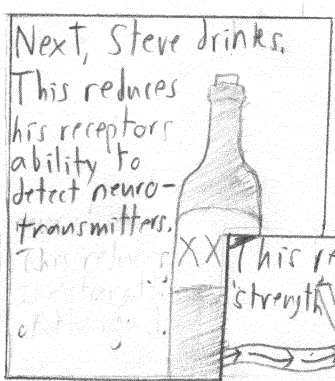 Next, Steve drinks.
This reduces
his receptors
ability to
detect neuro-
transmitters.
This reduces
the strength
of the signal.
XX
This re
strength